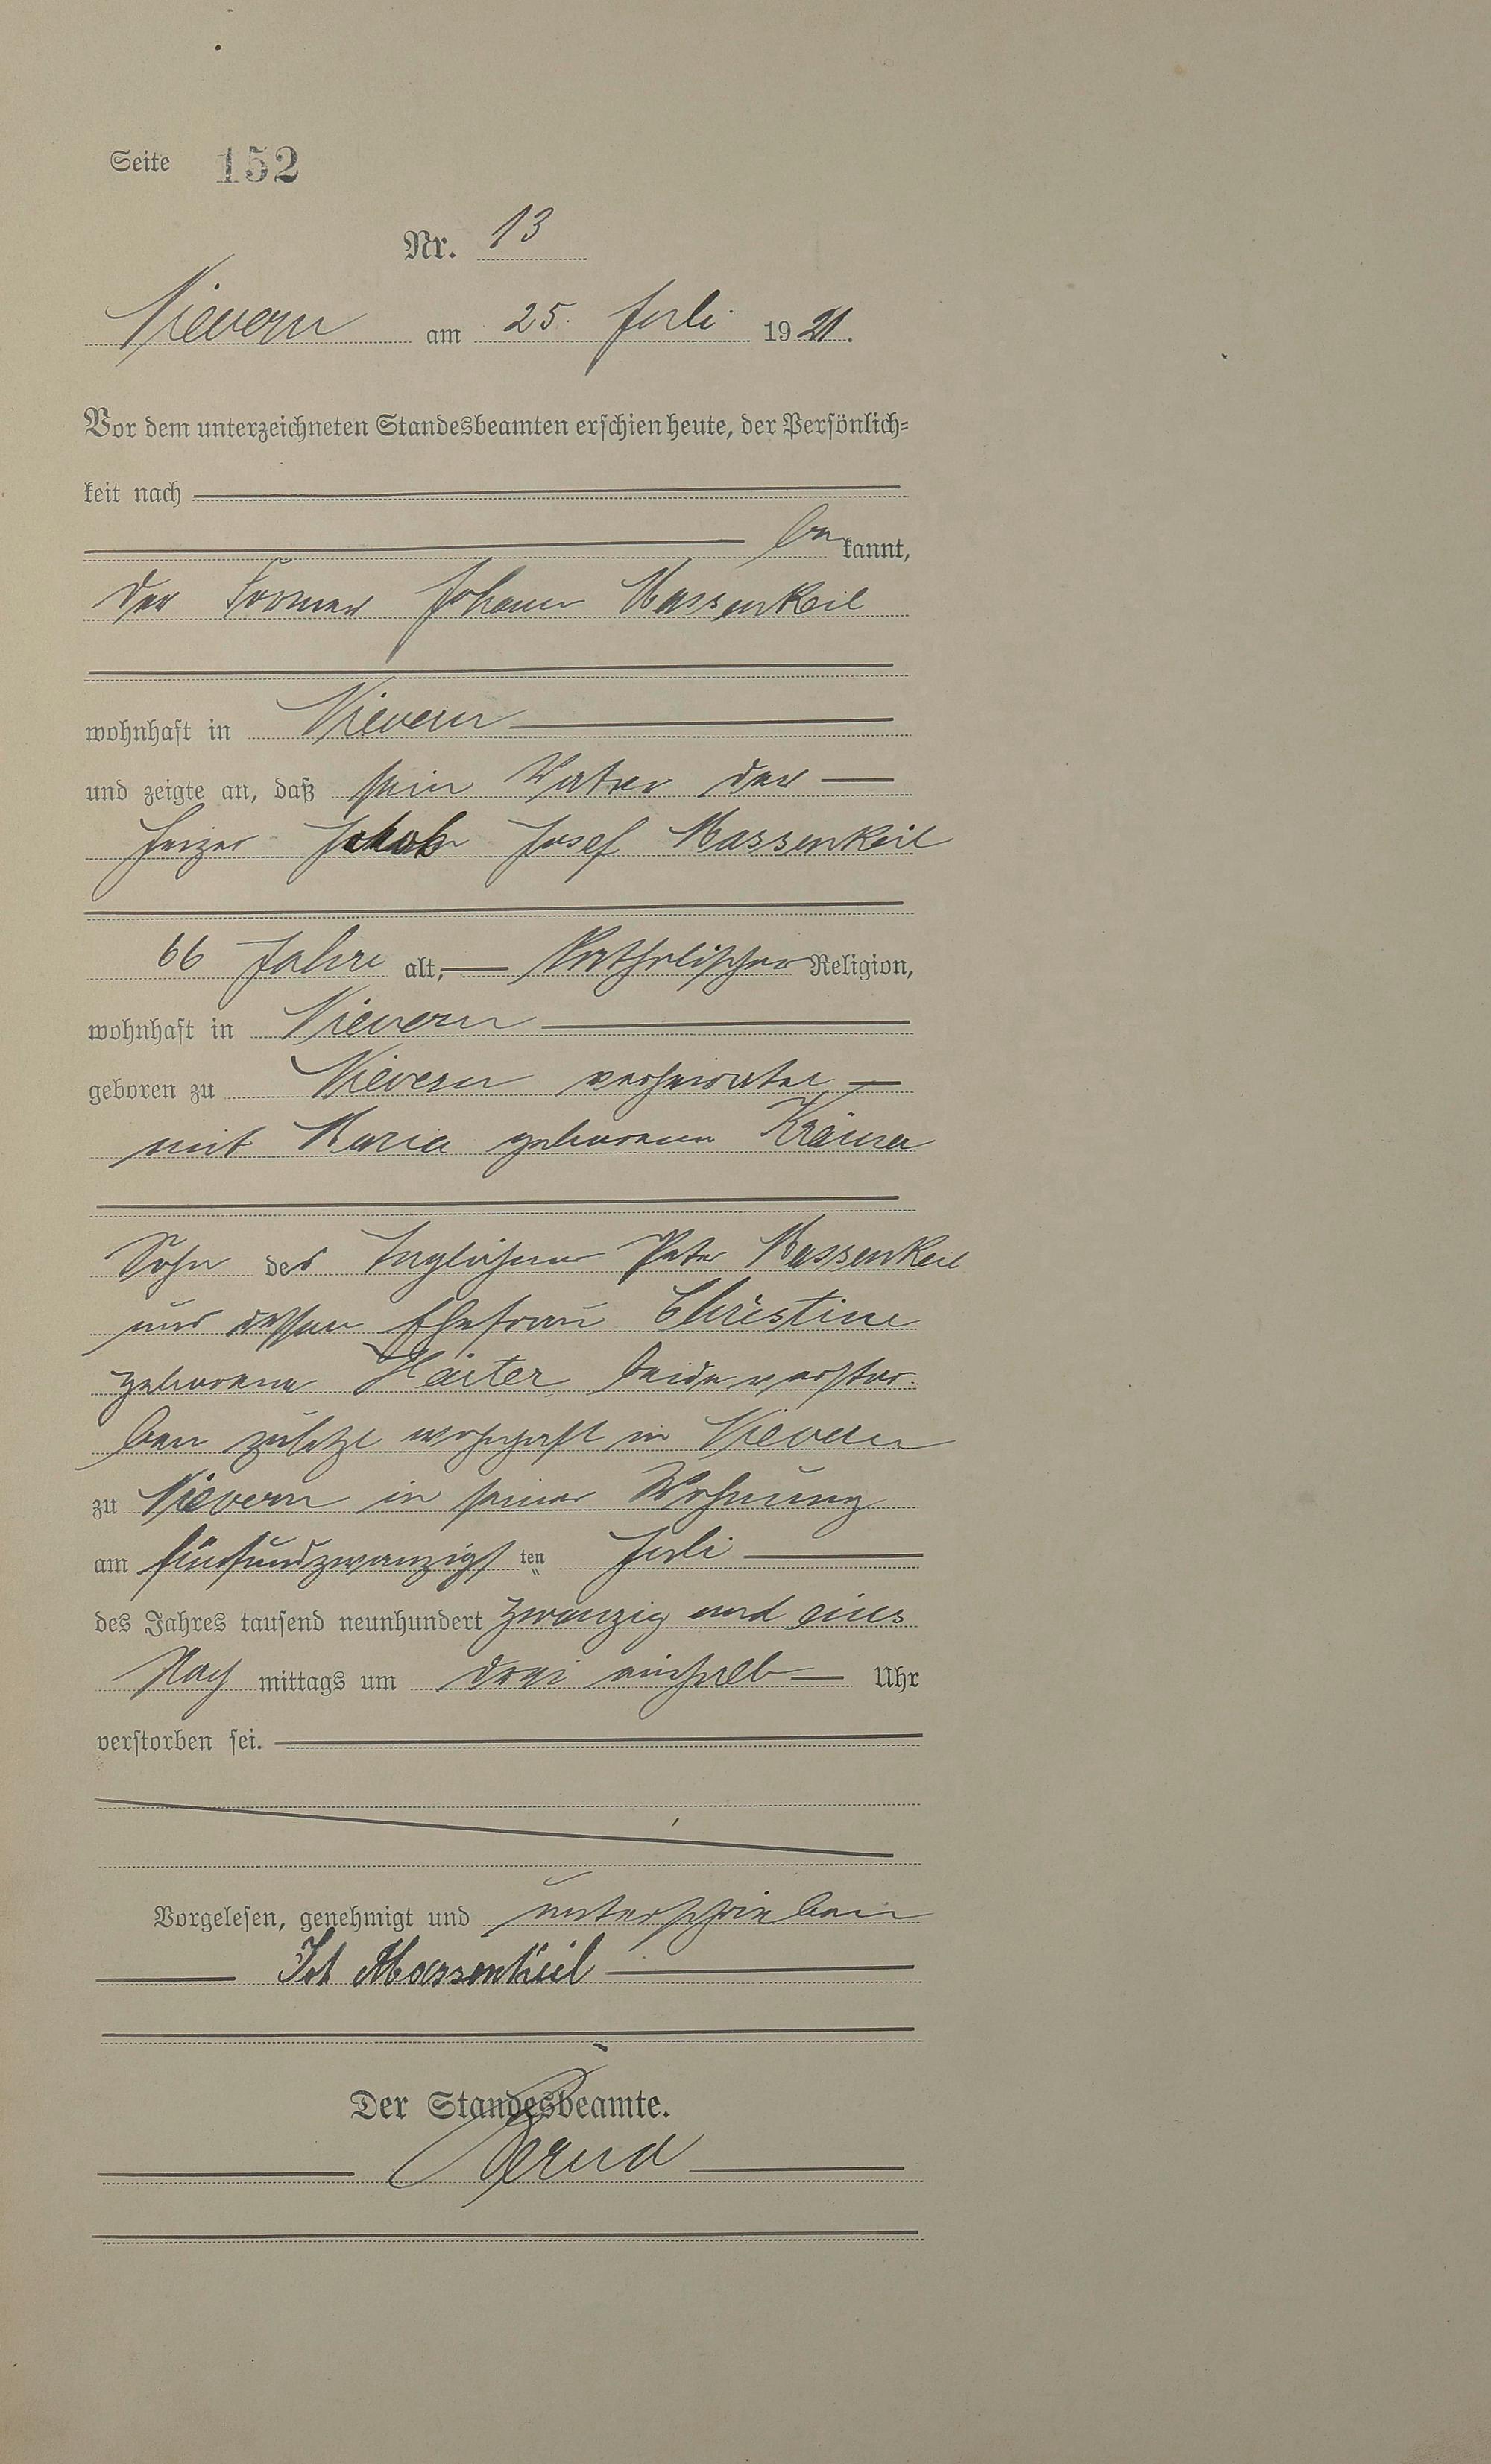 Seite 152
Nr. 13
Nievern am 25. Juli 1921.
Vor dem unterzeichneten Standesbeamten erschien heute, der Persönlich-
keit nach
bekannt,
der Former Johann Massenkeil
wohnhaft in Nievern
und zeigte an, daß sein Vater der
Heizer Jakob Josef Massenkeil
66 Jahre alt, katholischer Religion,
wohnhaft in Nievern
geboren zu Nievern verheiratet
mit Maria geborenen Krämer
Sohn des Taglöhner Peter Massenkeil
und dessen Ehefrau Christine
geborene beide verstor-
ben zuletzt wohnhaft in Nievern
zu Nievern in seiner Wohnung
am fünfundzwanzigsten Juli
des Jahres tausend neunhundert zwanzig und eins
Nach mittags um drei einhalb Uhr
verstorben sei.
Vorgelesen, genehmigt und unterschrieben
Joh Massenkeil
Der Standesbeamte.